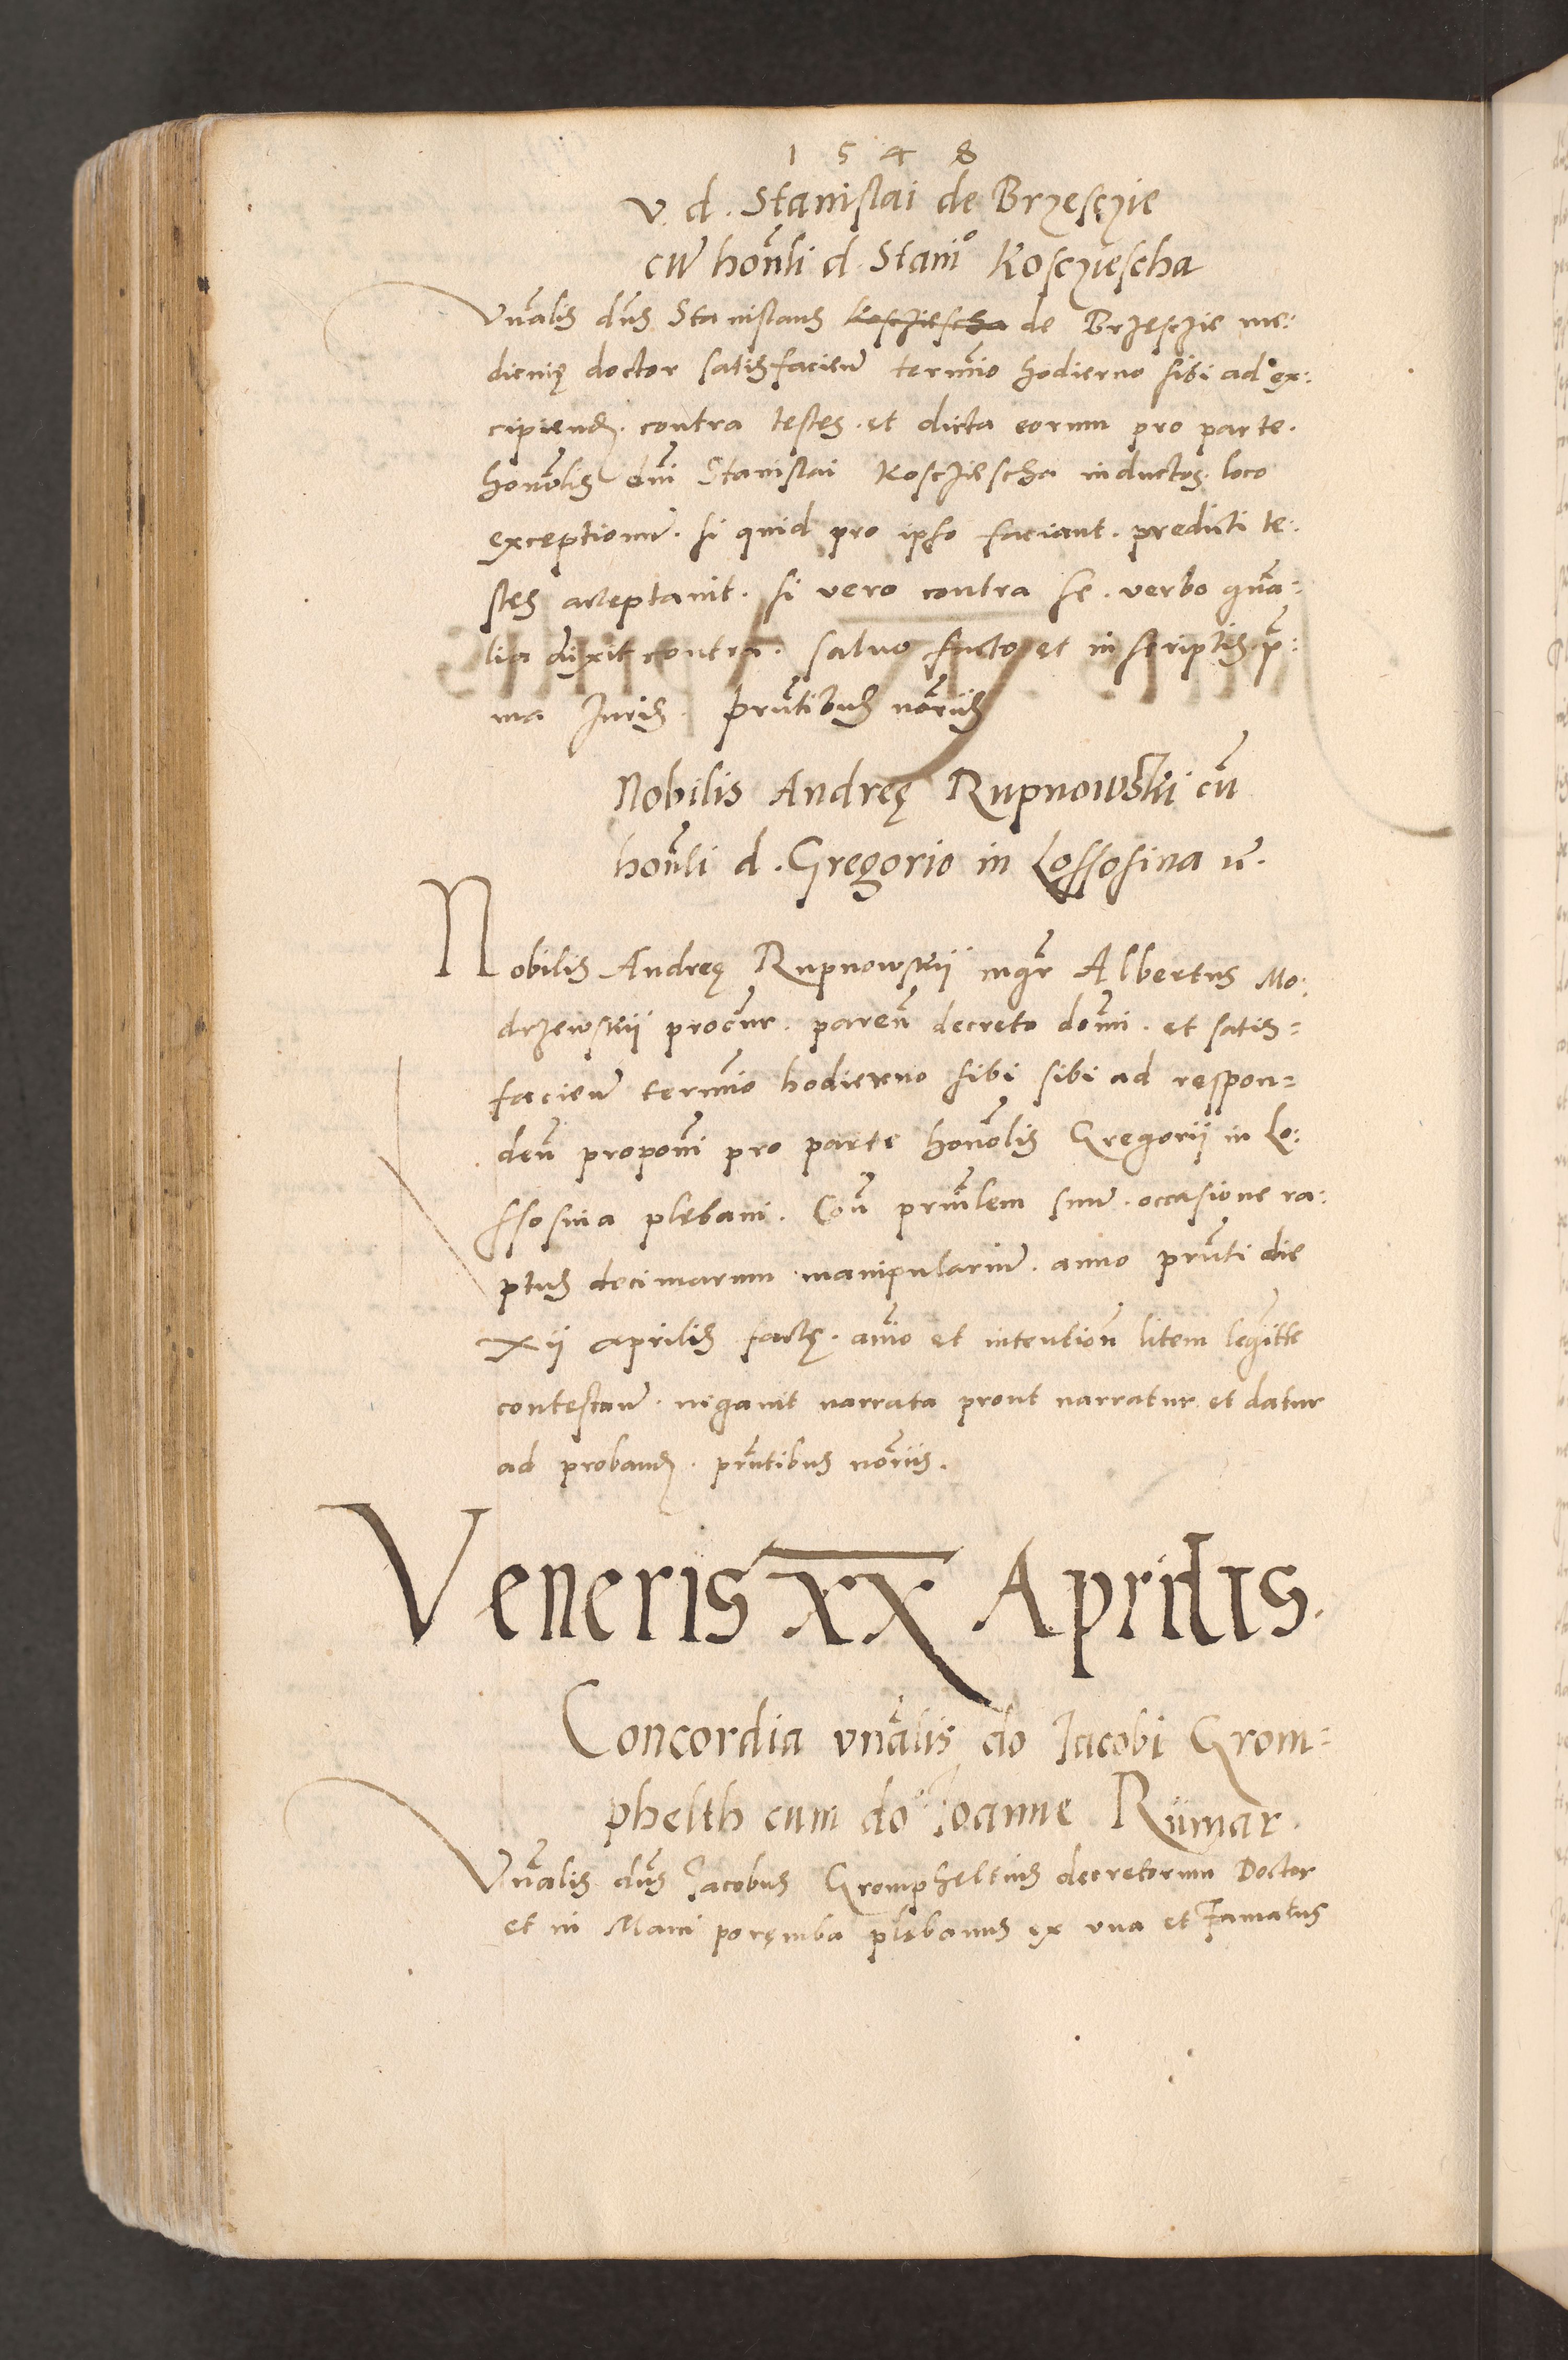 1548
V. d. Stanislai de Brzesczie
cum honli d. Stanio Koscziescha
Vnalis dns Stanislaus Koscziescha de Brzesczie me:
dicinę doctor satisfacien termio hodierno sibi ad ex:
cipiend. contra testes. et dicta eorum pro parte.
honorlis dni Stanislai Koscziescha inductos. loco
exceptionum. si quid pro ipso faciant. predicti te:
stes acceptauit. si vero contra se. verbo gna:
lia dixit contra. saluo facto et in scriptis
ma Juris. prntibus noriis
Nobilis Andreę Rupnowski cum
honli d. Gregorio in Lossosina
Nobilis Andreę Rupnowskij mgr Albertus Mo:
drzewskij procur. paren decreto domi. et satis=
facien termio hodierno sibi sibi ad respon=
den proponi pro parte honorlis Gregorij in Lo:
ssosina plebani. Con prinlem suum. occasione ra:
ptus decimarum manipularium. anno prnti die
xij aprilis factę. aio et intention litem legitte
contestan. negauit narrata prout narratur et datur
ad proband. prntibus noriis.
Veneris XX Aprilis.
Concordia vnalis do Jacobi Grom=
phelth cum do Joanne Rümar.
Vnalis dns Jacobus Grompheltius decretorum Doctor
et in Mani poręmba plebanus ex vna et Famatus